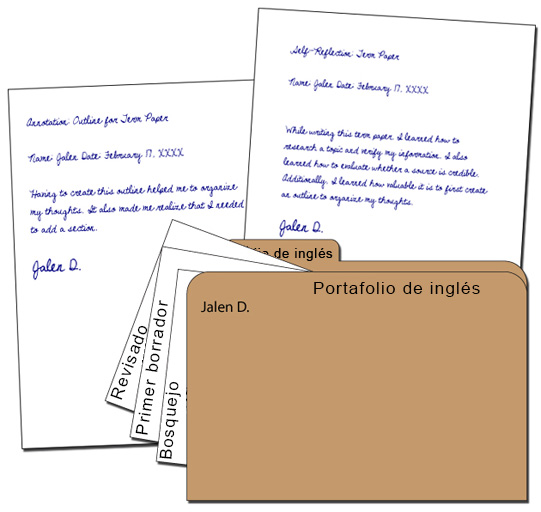 Self-Reflection: Term Paper
Name: Jalen Date: February 17, XXXX
While writing this term paper, I learned how to
research a topic and verify my information. I also
learned how to evaluate whether a source is credible.
Additionally, I learned how valuable it is to first create
an outline to organize my thoughts.
Jalen D.
Annotation: Outline for Term Paper
Name: Jalen Date: February 17, XXXX
Having to create this outline helped me to organize
my thoughts. It also made me realize that I needed
to add a section.
Jalen D.
Revisado
Primer borrador
Bosquejo
folio de inglés
Portafolio de inglés
Jalen D.